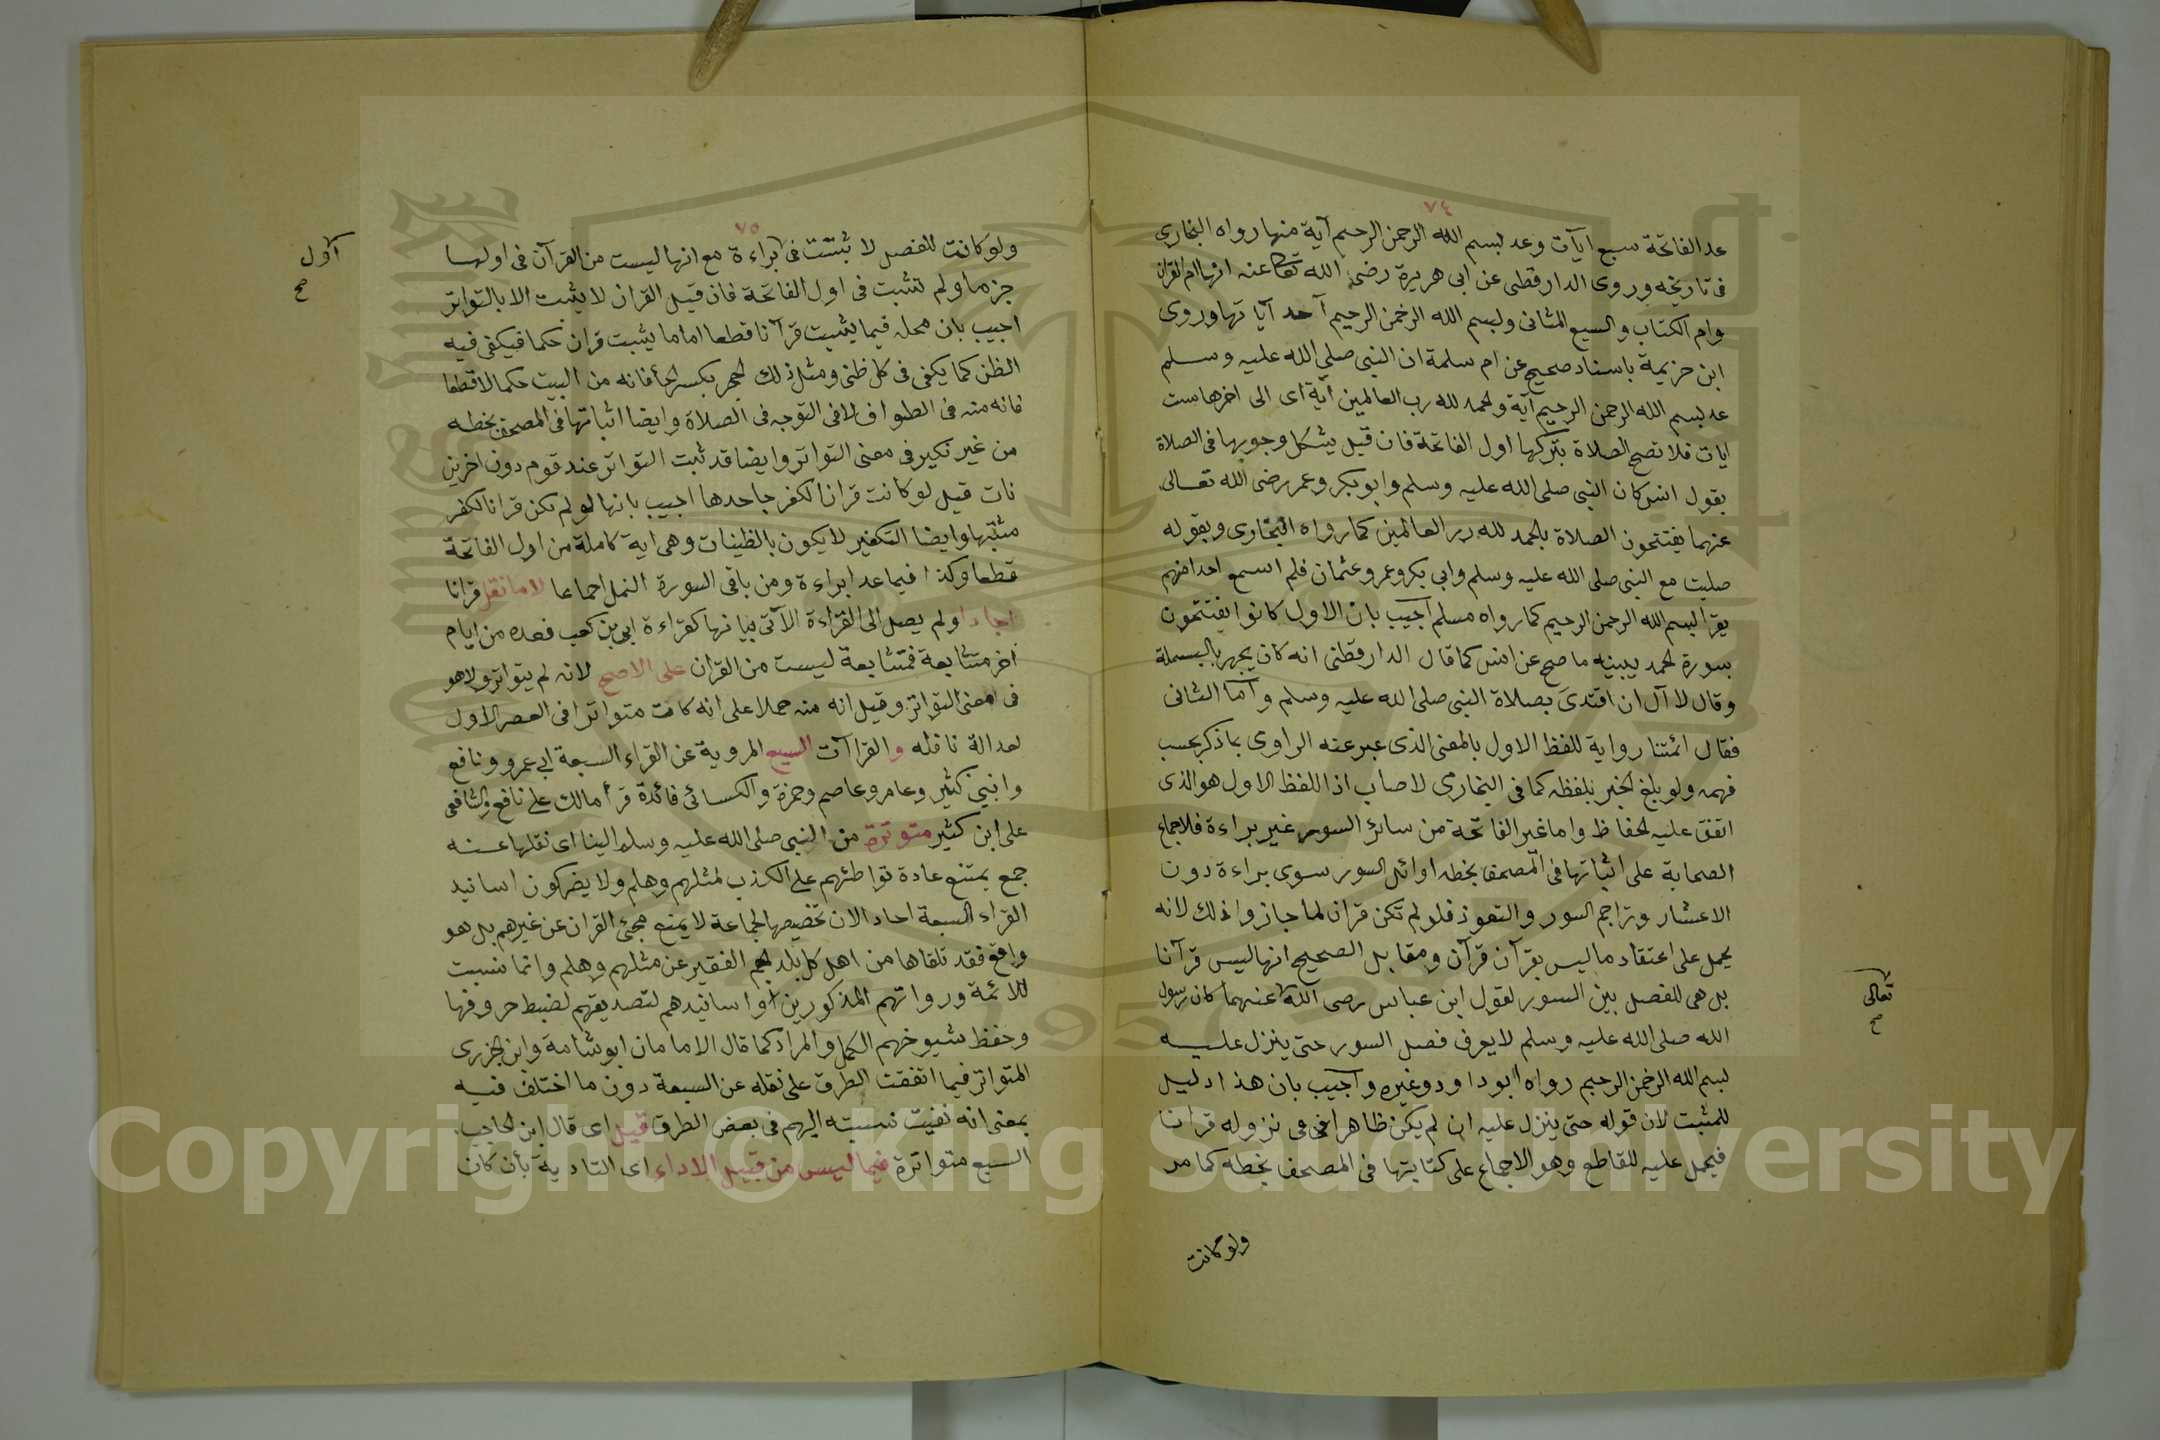 ٧٤
عد الفاتحة سبع ايآت وعد بسم الله الرحمن الرحيم آية منها رواه البخاري
فى تاريخه وروى الدارقطنى عن ابى هريرة رضى الله تعالى عنه انها ام القران
وام الكتاب والسبع المثانى وبسم الله الرحمن الرحيم آحد آياتها وروى
ابن خزيمة باسناد صحيح عن ام سلمة ان النبى صلى الله عليه وسلم
عد بسم الله الرحمن الرحيم آية والحمد لله رب العالمين آية اى الى اخرها ست
ايات فلا تصح الصلاة بتركها اول الفاتحة فان قيل يشكل وجوبها فى الصلاة
بقول انس كان النبى صلى الله عليه وسلم وابو بكر وعمر رضى الله تعالى
عنهما يفتتحون الصلاة بالحمد لله رب العالمين كما رواه البخاوى وبقوله
صليت مع النبى صلى الله عليه وسلم وابى بكر وعمر وعثمان فلم اسمع احدا منهم
يقرا بسم الله الرحمن الرحيم كما رواه مسلم آجيب بان الاول كانوا يفتتحون
بسورة الحمد يبينه ما صح عن انس كما قال الدارقطنى انه كان يجهر بالبسملة
وقال لا آل ان اقتدى بصلاة النبى صلى الله عليه وسلم وآما الثانى
فقال ائمتنا رواية للفظ الاول بالمعنى الذى عبر عنه الراوى بما ذكر بحسب
فهمه ولو بلغ الخبر بلفظه كما فى البخارى لاصاب اذ اللفظ الاول هو الذى
اتفق عليه الحفاظ واما غير الفاتحة من سائر السور غير براءة فلاجماع
الصحابة على اثباتها فى المصحف بخطه اوائل السور سوى براءة دون
الاعشار وتراجم السور والتعوذ فلو لم تكن قرانا لما جازوا ذلك لانه
يحمل على اعتقاد ما ليس بقرآن قرآن ومقابل الصحيح انها ليس قرآنا
بل هى للفصل بين السور لقول ابن عباس رضى الله عنهما كان رسول
الله صلى الله عليه وسلم لا يعرف فصل السور حتى ينزل عليه
بسم الله الرحمن الرحيم رواه ابو داود وغيره وآجيب بان هذا دليل
للمثبت لان قوله حتى ينزل عليه ان لم يكن ظاهرا فى نزوله قرانا
فيحمل عليه للقاطع وهو الاجماع على كتابتها فى المصحف بخطه كما مر
ولو كانت
تعالى
صح
٧٥
ولو كانت للفصل لا ثبتت فى براءة مع انها ليست من القرآن فى اولها
جزما ولم تثبت فى اول الفاتحة فان قيل القران لا يثبت الا بالتواتر
اجيب بان محله فيما يثبت قرآنا قطعا اما ما يثبت قران حكما فيكفى فيه
الظن كما يكفى فى كل ظنى ومثل ذلك الحجر بكسر الحأ فانه من البيت حكما لا قطعا
فانه منه فى الطواف لا فى التوجه فى الصلاة وايضا اثباتها فى المصحف بخطه
من غير نكير فى معنى التواتر وايضا قد ثبت التواتر عند قوم دون اخرين
فان قيل لو كانت قرانا لكفر جاحدها اجيب بانها لو لم تكن قرانا لكفر
مثبتها وايضا التكفير لا يكون بالظنيات وهى اية كاملة من اول الفاتحة
قطعا وكذا فيما عدا براءة ومن باقى السورة النمل اجماعا لا ما نقل قرانا
احادا ولم يصل الى القراءة الآتى بيانها كقراءة ابى بن كعب فعدة من ايام
اخر متتابعة فمتتابعة ليست من القران على الاصح لانه لم يتواتر ولا هو
فى معنى التواتر وقيل انه منه حملا على انه كان متواترا فى العصر الاول
لعدالة ناقله والقراآت السبع المروية عن القراء السبعة ابى عمرو ونافع
وابنى كثير وعامر وعاصم وحمزة والكسائى فائدة قرأ مالك على نافع والشافعى
على ابن كثير متوترة من النبى صلى الله عليه وسلم الينا اى نقلها عنه
جمع يمتنع عادة تواطئهم على الكذب لمثلهم وهلم ولا يضر كون اسانيد
القراء السبعة احاد الان تخصيصها لجماعة لا يمنع مجئ القران عن غيرهم بل هو
واقع فقد تلقاها من اهل كل بلد الجم الفقير عن مثلهم وهلم وانما نسبت
للائمة ورواتهم المذكورين او اسانيدهم لتصديقهم لضبط حروفها
وحفظ شيوخهم الكمل والمراد كما قال الامامان ابو شامة وابن الجزرى
المتواتر فيما اتفقت الطرق على نقله عن السبعة دون ما اختلف فيه
بمعنى انه نفيت نسبته اليهم فى بعض الطرق قيل اى قال ابن الحاجب
السبع متواترة فيما ليس من قبيل الاداء اى التادية بأن كان
اول
صح
Copyright © King Saud University
1957